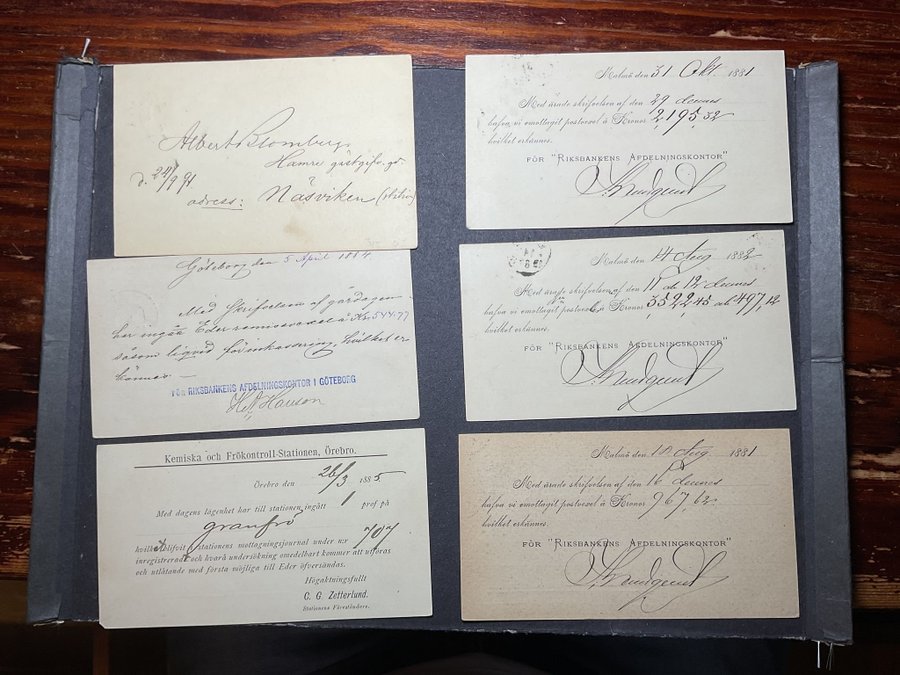 Albert Blomberg
Hamre gästgifv.gd
d. 22/9 91
adress: Näsviken
Göteborg den 5 April 1884.
Med skrifvelsen af gårdagen
har ingått Eder remissvexel å Kr. 544.77
såsom liqvid för inkassering, hvilket er-
kännes.—
FÖR RIKSBANKENS AFDELNINGSKONTOR I GÖTEBORG
Hanson
Kemiska och Frökontroll-Stationen, Örebro.
Örebro den 26/3 1885
Med dagens lägenhet har till stationen ingått 1 prof på
granfrö
hvilket blifvit i stationens mottagningsjournal under n:r 707
inregistreradt och hvarå undersökning omedelbart kommer att utföras
och utlåtande med första möjliga till Eder öfversändas.
Högaktningsfullt
C. G. Zetterlund.
Stationens Föreståndare.
Malmö den 31 Okt. 1881
Med ärade skrifvelsen af den 29 dennes
hafva vi emottagit postvexel å Kronor 2,195,52
hvilket erkännes.
FÖR "RIKSBANKENS AFDELNINGSKONTOR"
Malmö den 14 Aug 1882
Med ärade skrifvelsen af den 11 och 12 dennes
hafva vi emottagit postvexel å Kronor 3522,45 och 497,12
hvilket erkännes.
FÖR "RIKSBANKENS AFDELNINGSKONTOR"
Malmö den Aug. 1881
Med ärade skrifvelsen af den 16 dennes
hafva vi emottagit postvexel å Kronor 967,62
hvilket erkännes.
FÖR "RIKSBANKENS AFDELNINGSKONTOR"